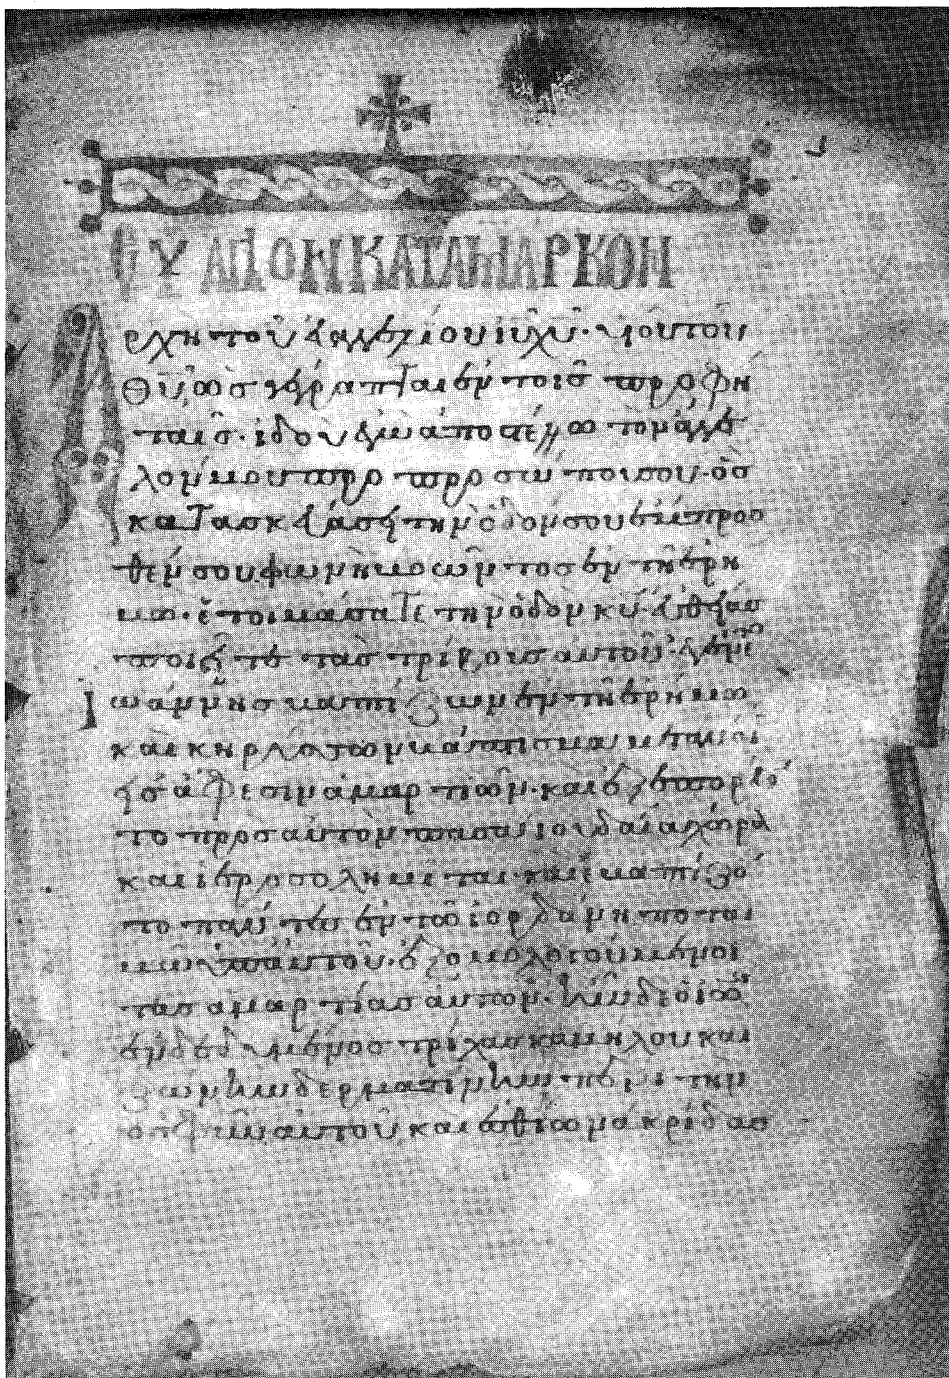 ΕΥΑΓΓΕΛΙΟΝ ΚΑΤΑ ΜΑΡΚΟΝ
Αρχὴ τοῦ εὐαγγελίου ιυ χυ· υἱοῦ τοῦ
θυ ὡς γέγραπται ἐν τοῖς προφή
ταις· ἰδοὺ ἐγὼ ἀποστέλλω τὸν ἄγγε
λόν μου πρὸ προσώπου σου· ὃς
κατασκευάσει τὴν ὁδόν σου ἔμπροσ
θέν σου φωνὴ βοῶντος ἐν τῇ ἐρή
μω· ἑτοιμάσατε τὴν ὁδὸν κυ εὐθείας
ποιεῖτε τὰς τρίβους αὐτοῦ· ἐγένετο
Ἰωάννης βαπτίζων ἐν τῇ ἐρήμω
καὶ κηρύσσων βάπτισμα μετανοί
ας εἰς ἄφεσιν ἁμαρτιῶν· καὶ ἐξεπορεύε
το πρὸς αὐτὸν πᾶσα ἡ ἰουδαία χώρα
καὶ ἱεροσολυμῖται· καὶ ἐβαπτίζον
το πάντες ἐν τῶ ἰορδάνη ποτα
μῶ ὑπ αὐτοῦ· ἐξομολογούμενοι
τὰς ἁμαρτίας αὐτῶν· ἦν δὲ ὁ ἰωάννης
ἐνδεδυμένος τρίχας καμήλου καὶ
ζώνην δερματίνην περὶ τὴν
ὀσφὺν αὐτοῦ καὶ ἐσθίων ἀκρίδας